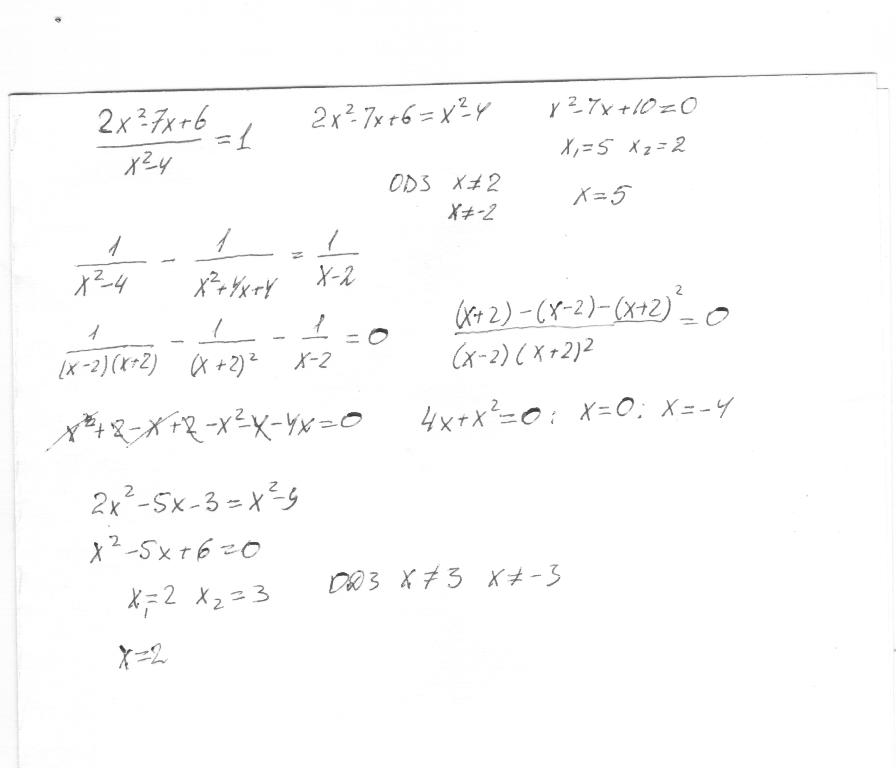 (2x²-7x+6)/(x²-4) = 1   2x²-7x+6 = x²-4   x²-7x+10=0
x₁=5 x₂=2
ОДЗ x≠2
x≠-2   x=5
1/(x²-4) - 1/(x²+4x+4) = 1/(x-2)
1/((x-2)(x+2)) - 1/(x+2)² - 1/(x-2) = 0   ((x+2)-(x-2)-(x+2)²)/((x-2)(x+2)²) = 0
x+2-x+2-x²-4-4x=0   4x+x²=0; x=0; x=-4
2x²-5x-3=x²-9
x²-5x+6=0
x₁=2 x₂=3   ОДЗ x≠3 x≠-3
x=2